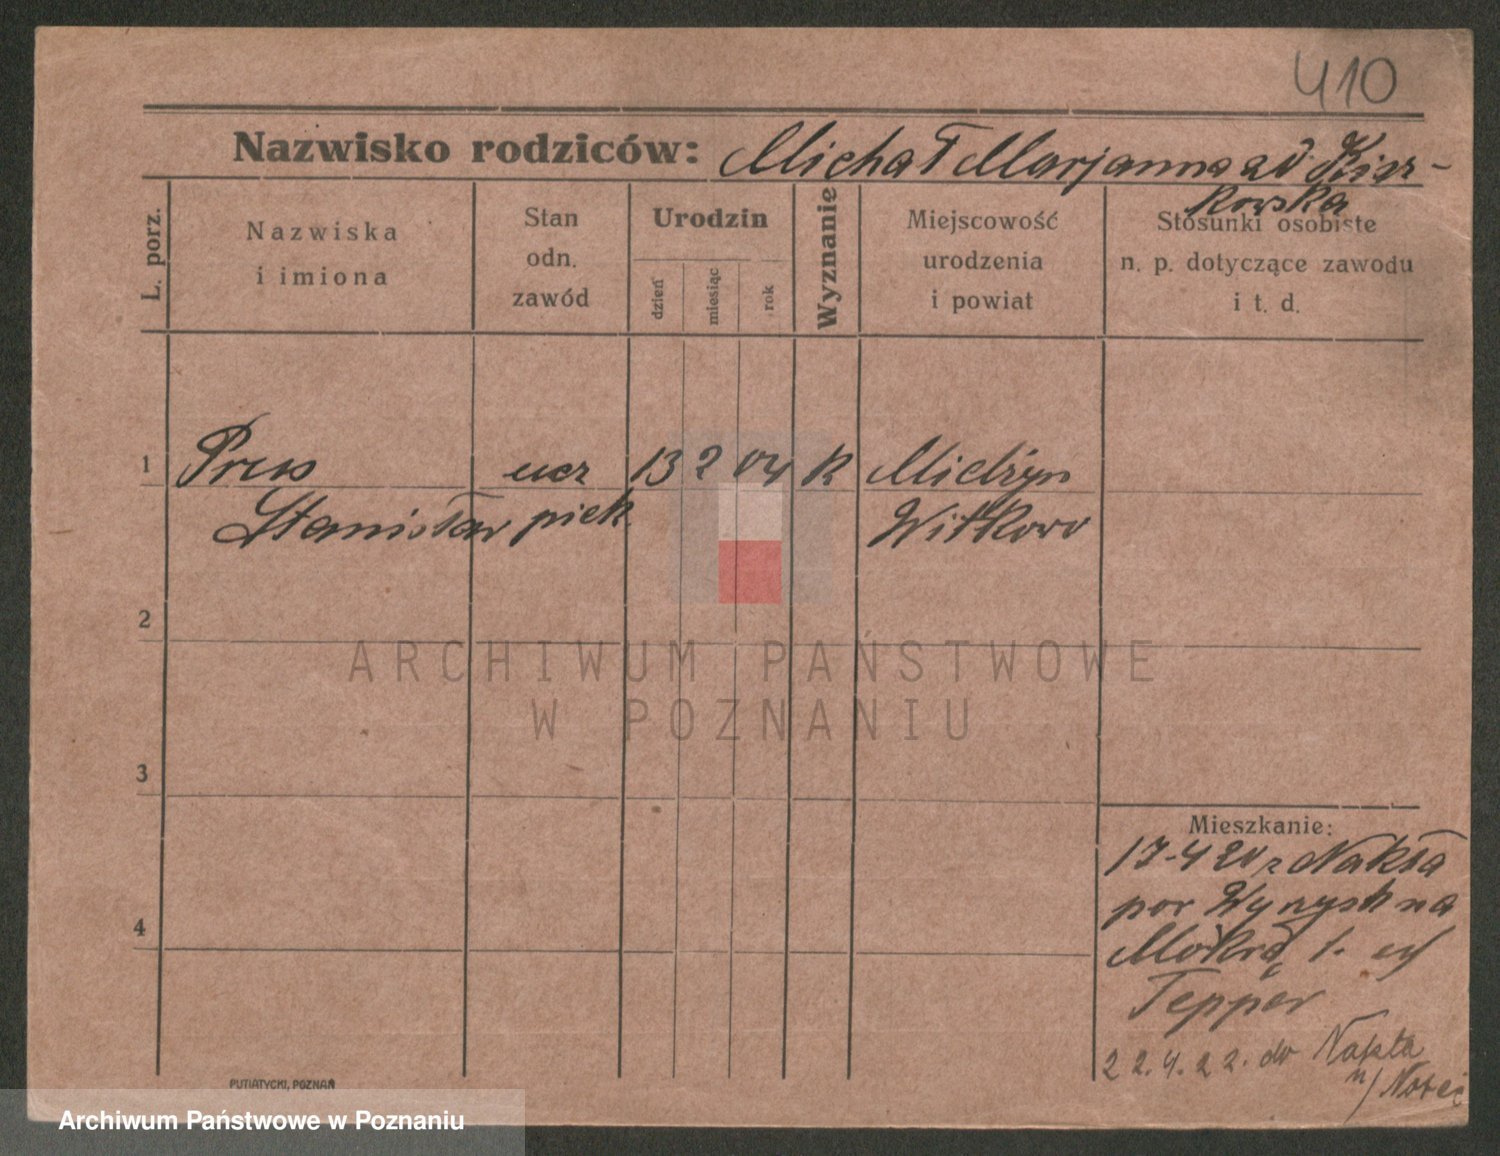 410
Nazwisko rodziców: Michał Marjanna zd. Kier-
kowska
L. porz.
Nazwiska
i imiona
Stan
odn.
zawód
Urodzin
dzień
miesiąc
rok
Wyznanie
Miejscowość
urodzenia
i powiat
Stosunki osobiste
n. p. dotyczące zawodu
i t. d.
1 Preus ucz 13 2 04 k Mielżyn
Stanisław piek Witkowo
2
3
4
ARCHIWUM PAŃSTWOWE
W POZNANIU
Mieszkanie:
17-4 20 z Nakła
pow Wyrzysk na
Mokrą 1.
Tepper
22.4.22. do Nakła
n/Notec
PUTIATYCKI, POZNAŃ
Archiwum Państwowe w Poznaniu